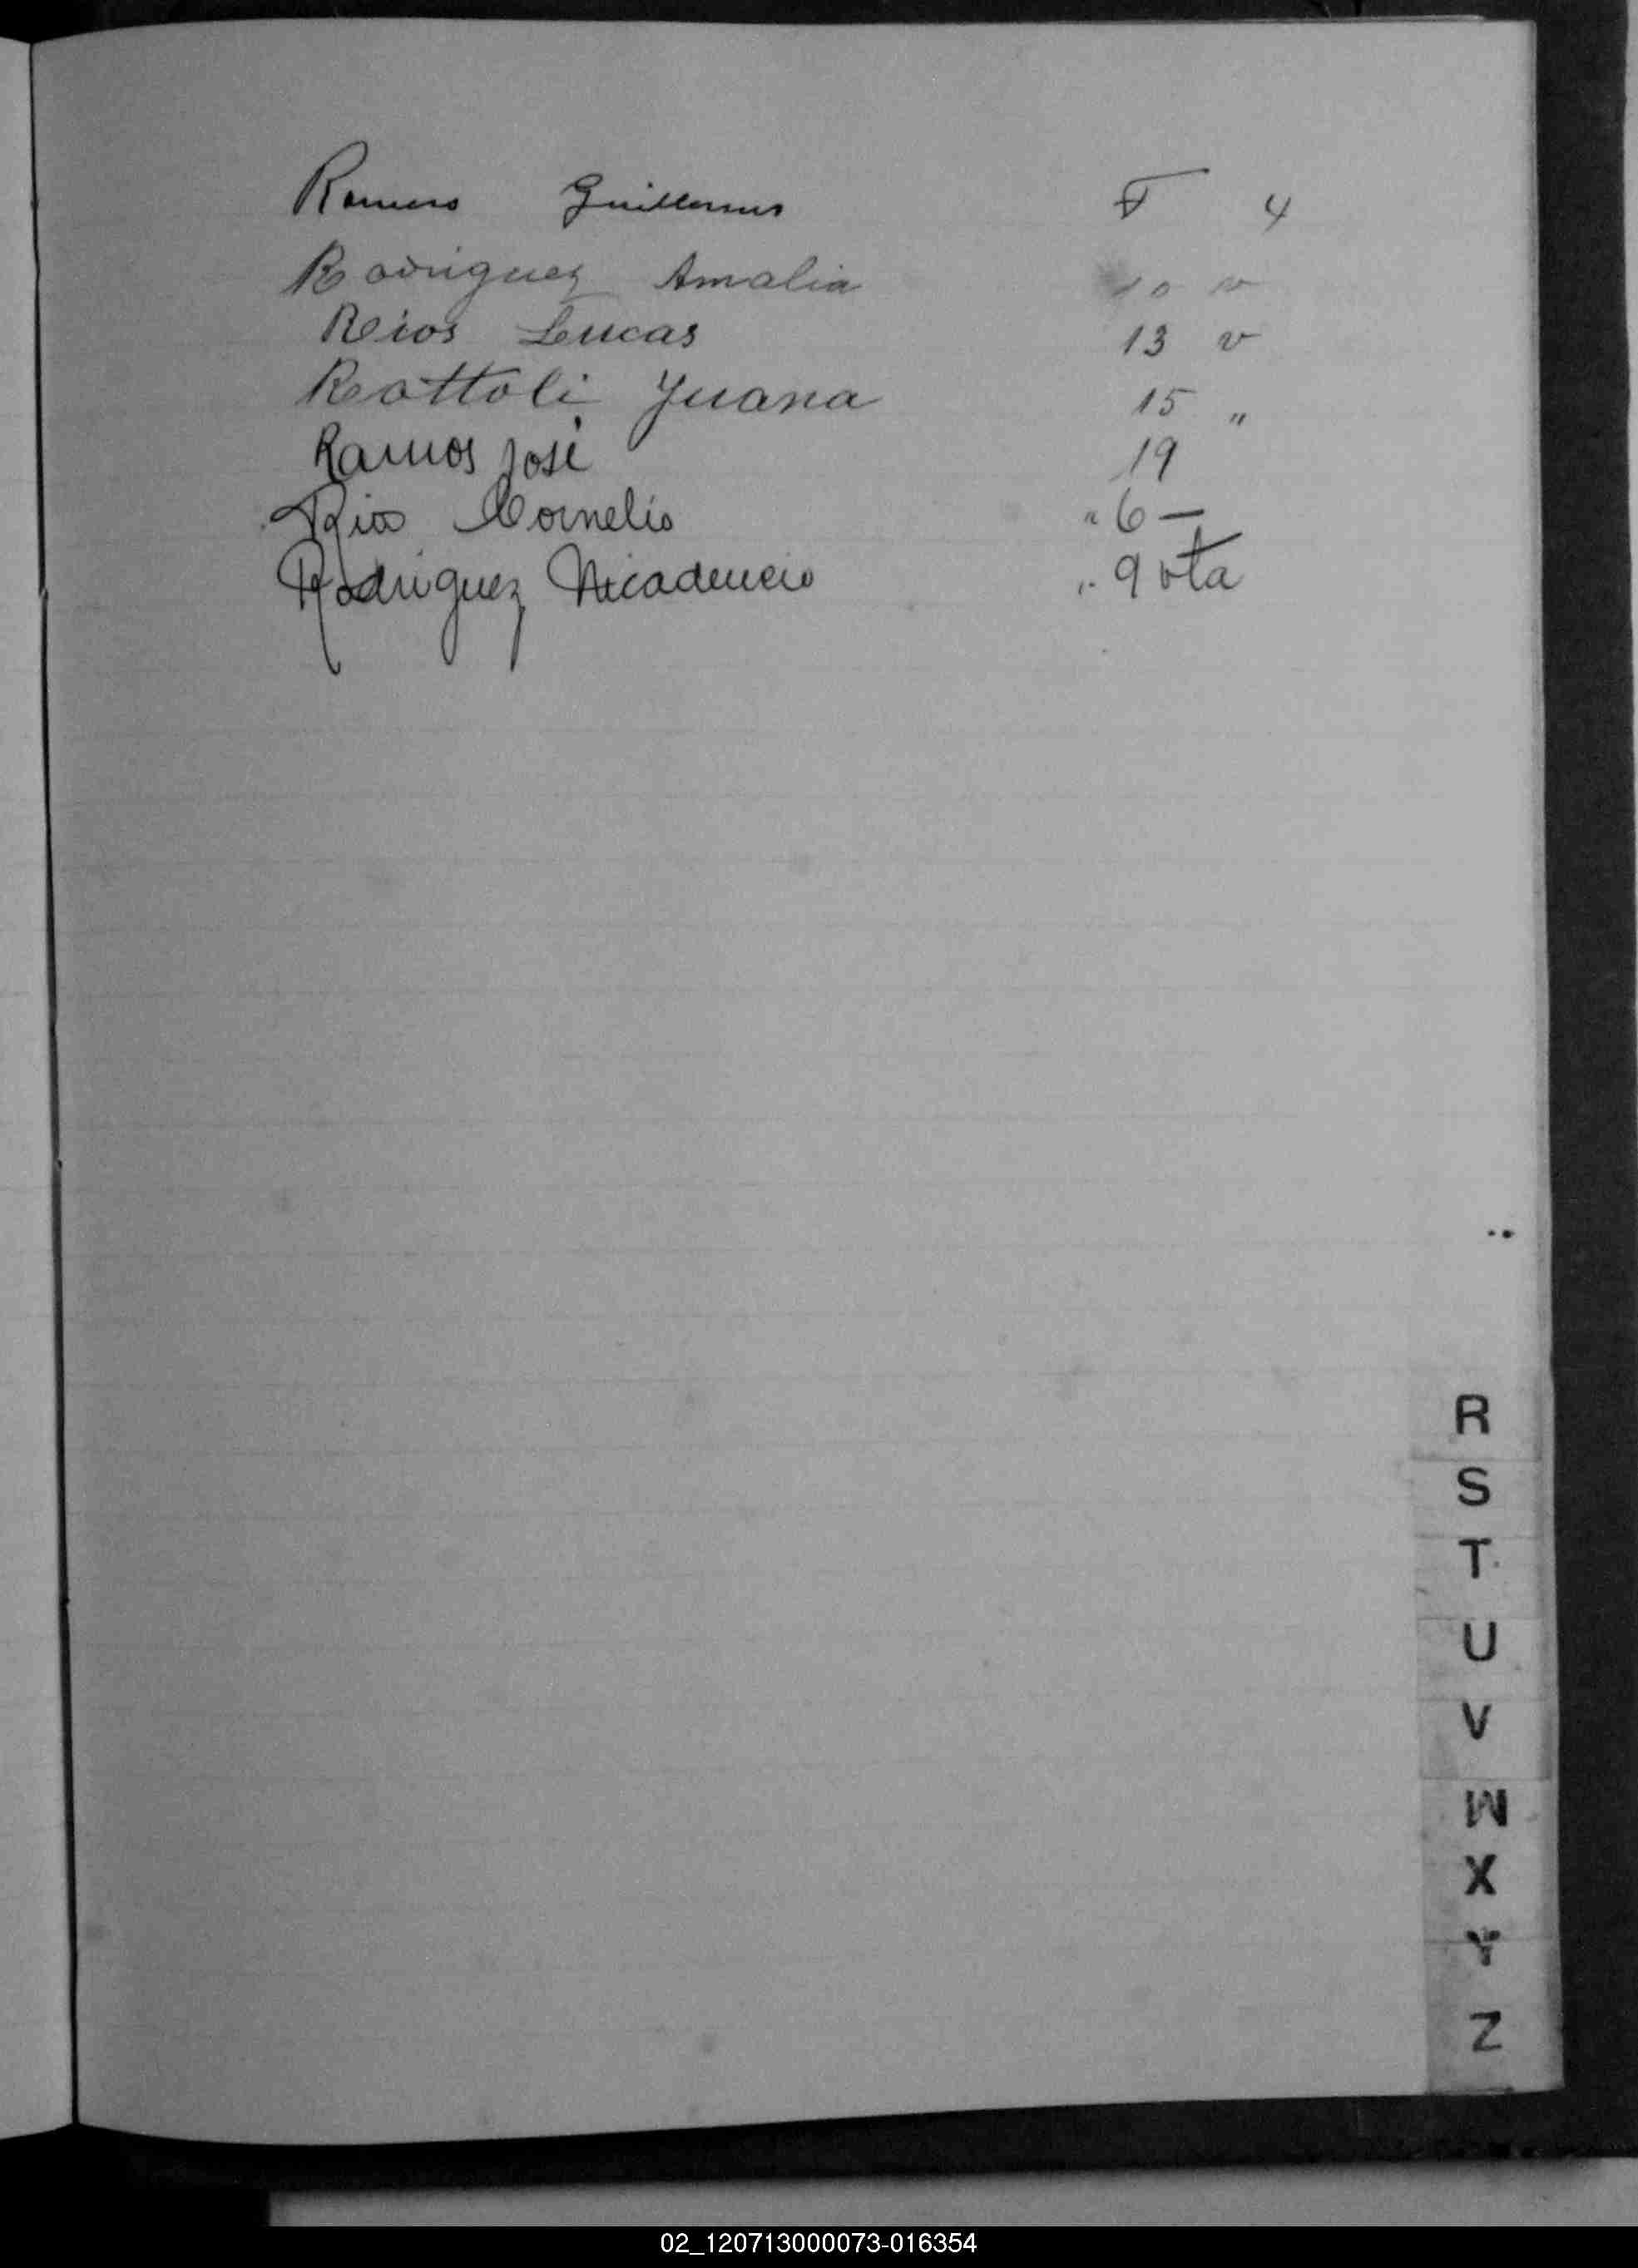 Romero Guillermo F 4
Rodriguez Amalia 10 v
Rios Lucas 13 v
Rattoli Juana 15 "
Ramos José 19
Rios Cornelio " 6 —
Rodriguez " 9 vta
R
S
T
U
V
W
X
Y
Z
02_120713000073-016354